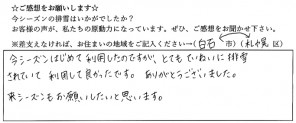 ☆ご感想をお願いします☆
今シーズンの排雪はいかがでしたか？
お客様の声が、私たちの原動力になっています。ぜひ、ご感想をお聞かせ下さい。
※差支えなければ、お住まいの地域をご記入ください→（白石 市）（札幌 区）
今シーズンはじめて利用したのですが、とてもていねいに排雪
されていて利用して良かったです。ありがとうございました。
来シーズンもお願いしたいと思います。